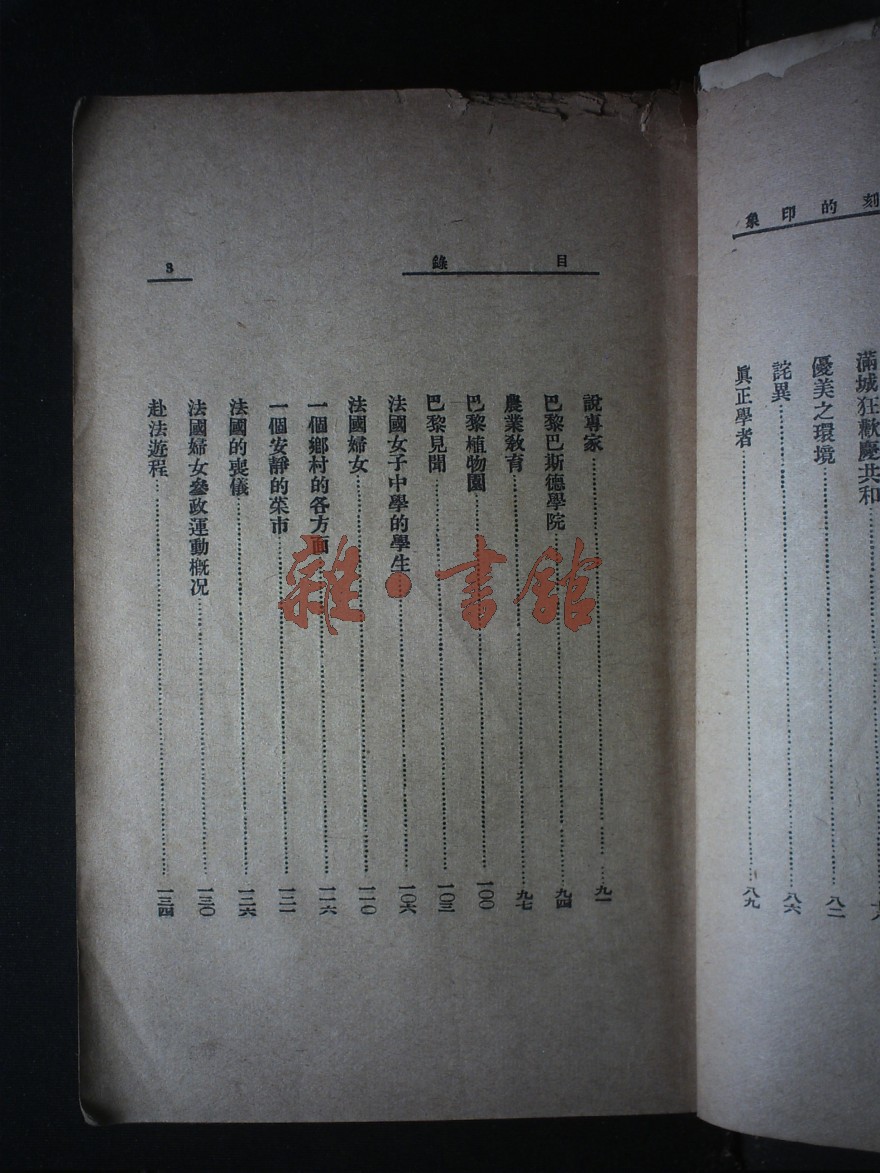 刻的印象
滿城狂歡慶共和
優美之環境 八二
詫異 八六
眞正學者 八九
目錄
3
說專家 九一
巴黎巴斯德學院 九四
農業敎育 九七
巴黎植物園 一〇〇
巴黎見聞 一〇三
法國女子中學的學生 一〇六
法國婦女 一一〇
一個鄉村的各方面 一一六
一個安靜的菜市 一二一
法國的喪儀 一二六
法國婦女參政運動概况 一三〇
赴法遊程 一三四
雜·書館